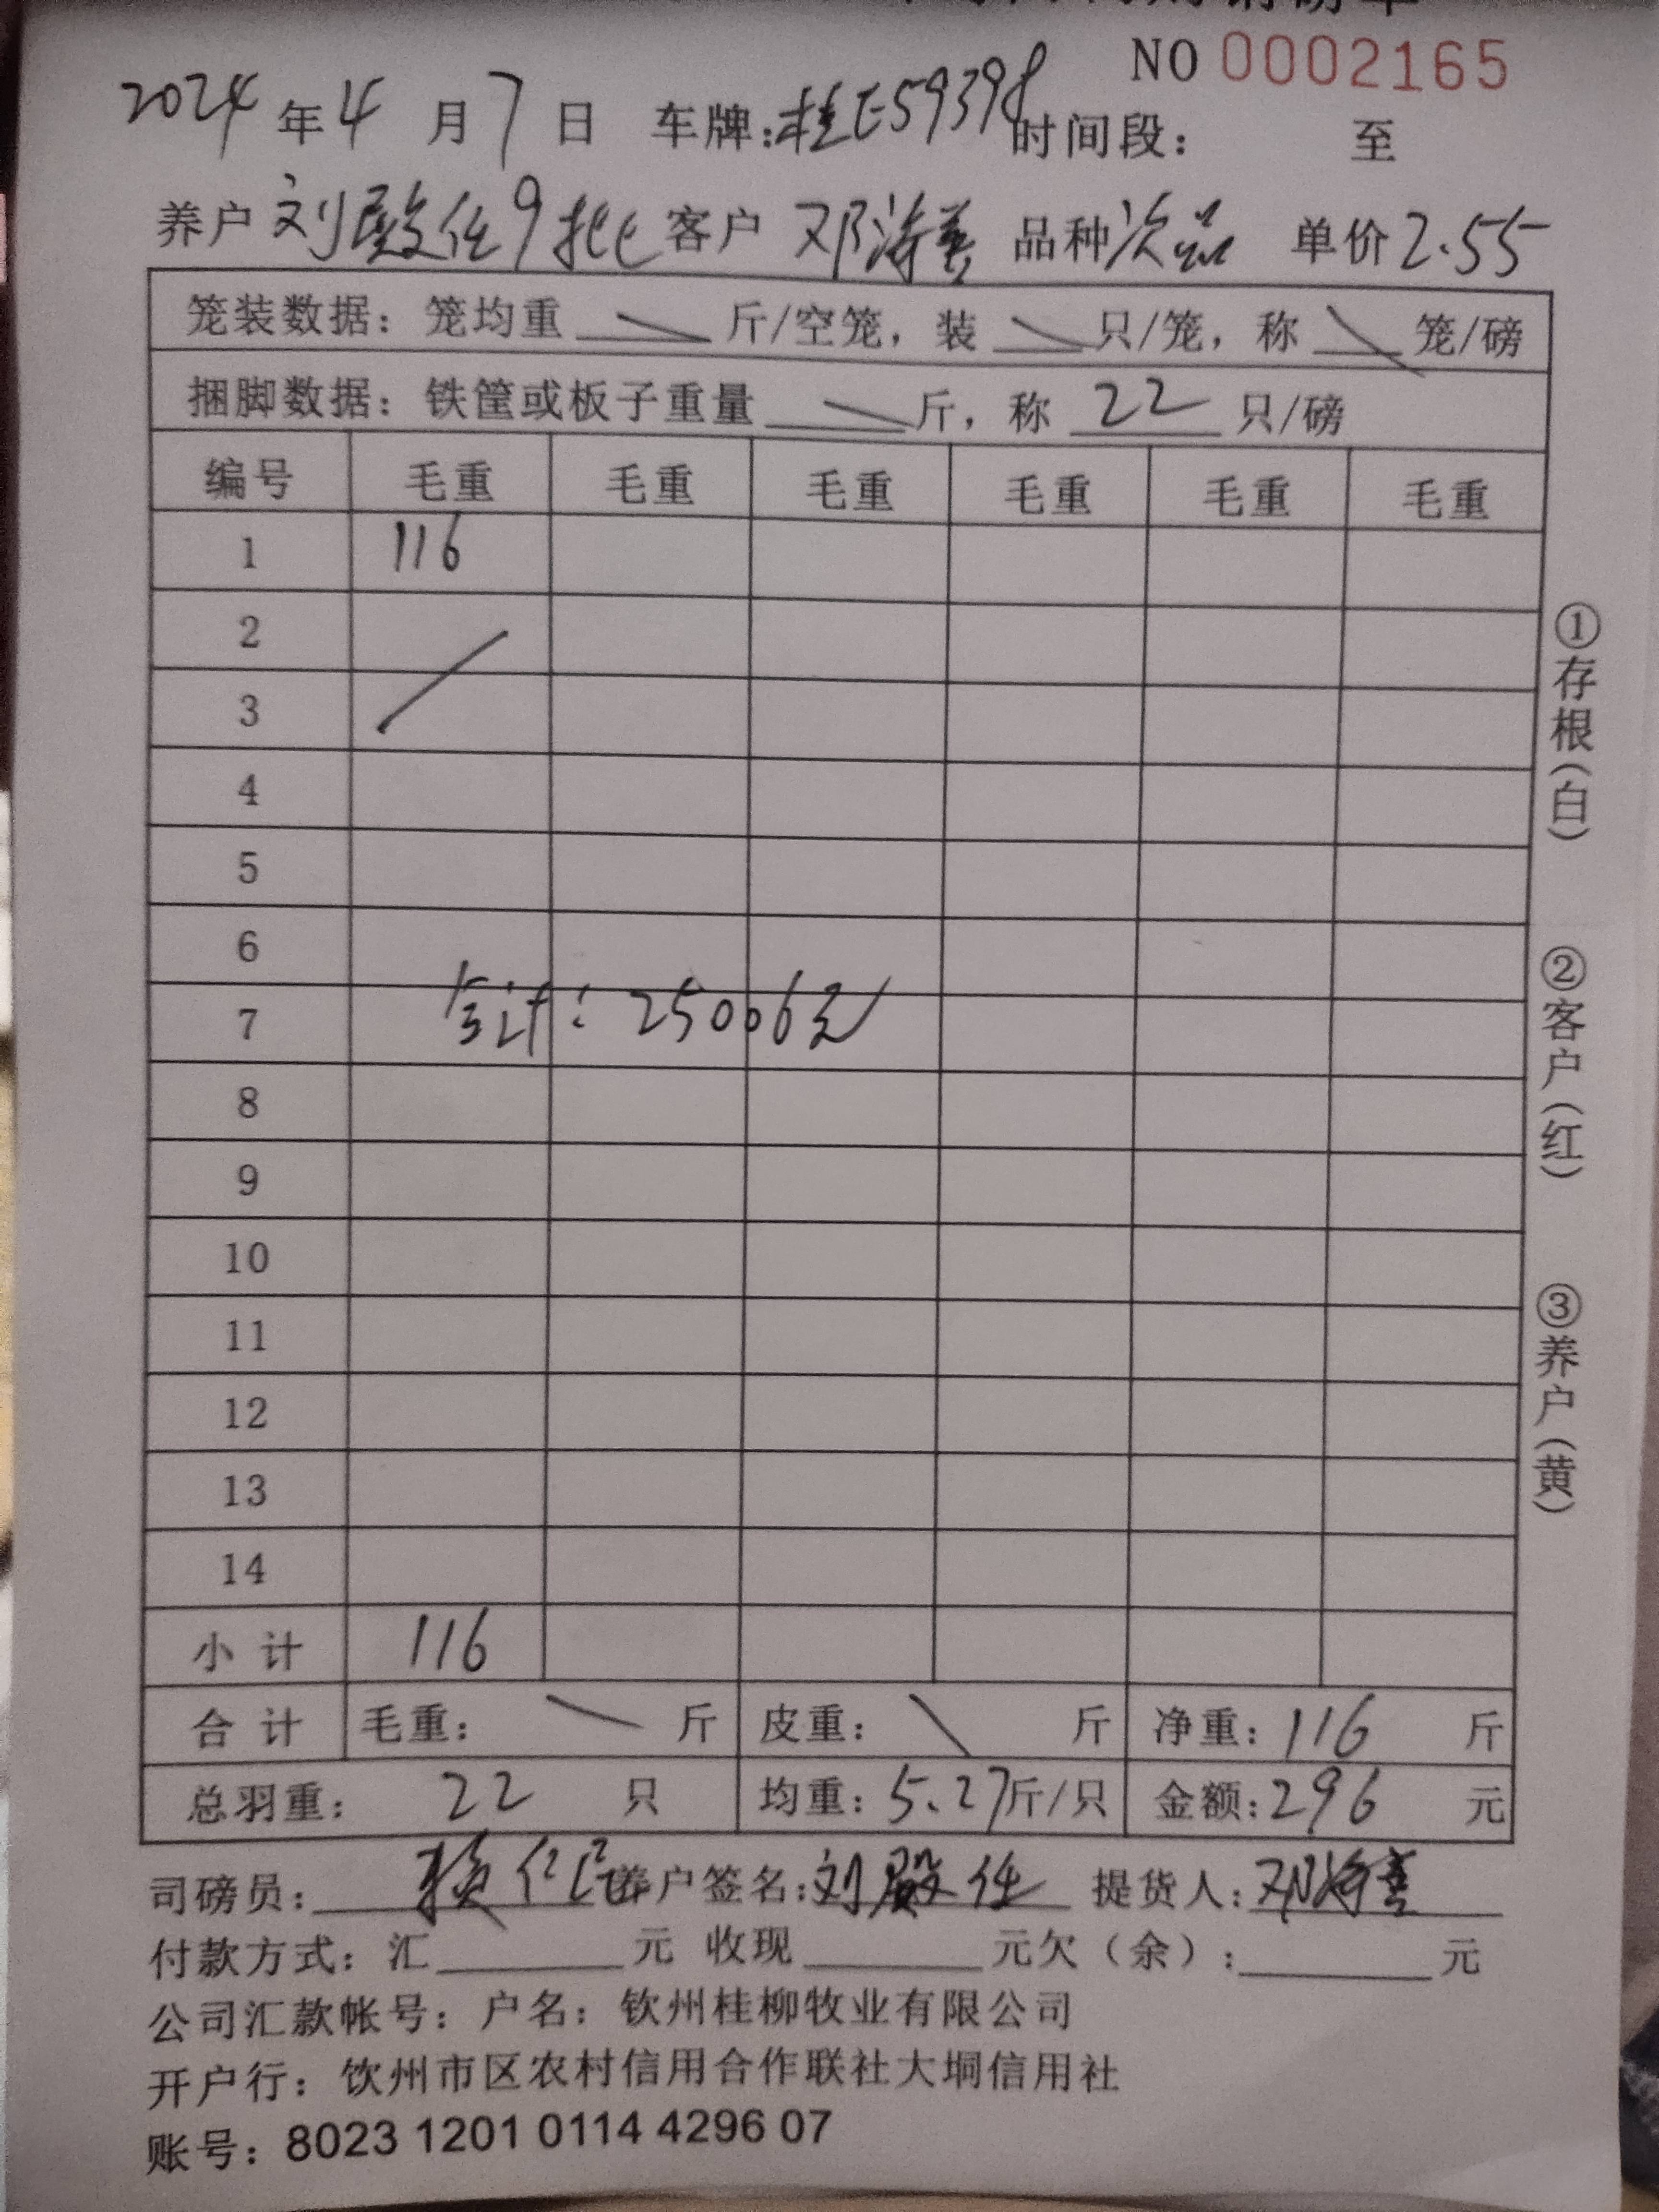 NO 0002165
2024年4月7日 车牌:桂E59398 时间段: 至
养户 刘殿任9批 客户 邓海善 品种 次品 单价 2.55
笼装数据:笼均重 斤/空笼,装 只/笼,称 笼/磅
捆脚数据:铁筐或板子重量 斤,称 22 只/磅
编号 毛重 毛重 毛重 毛重 毛重 毛重
1 116
2
3
4
5
6
7 合计:25066元
8
9
10
11
12
13
14
小计 116
合计 毛重: 斤 皮重: 斤 净重:116 斤
总羽重: 22 只 均重:5.27斤/只 金额:296 元
司磅员: 仁 养户签名:刘殿任 提货人:邓海善
付款方式:汇 元 收现 元欠(余): 元
公司汇款帐号:户名:钦州桂柳牧业有限公司
开户行:饮州市区农村信用合作联社大垌信用社
账号:8023 1201 0114 4296 07
①存根(白)
②客户(红)
③养户(黄)